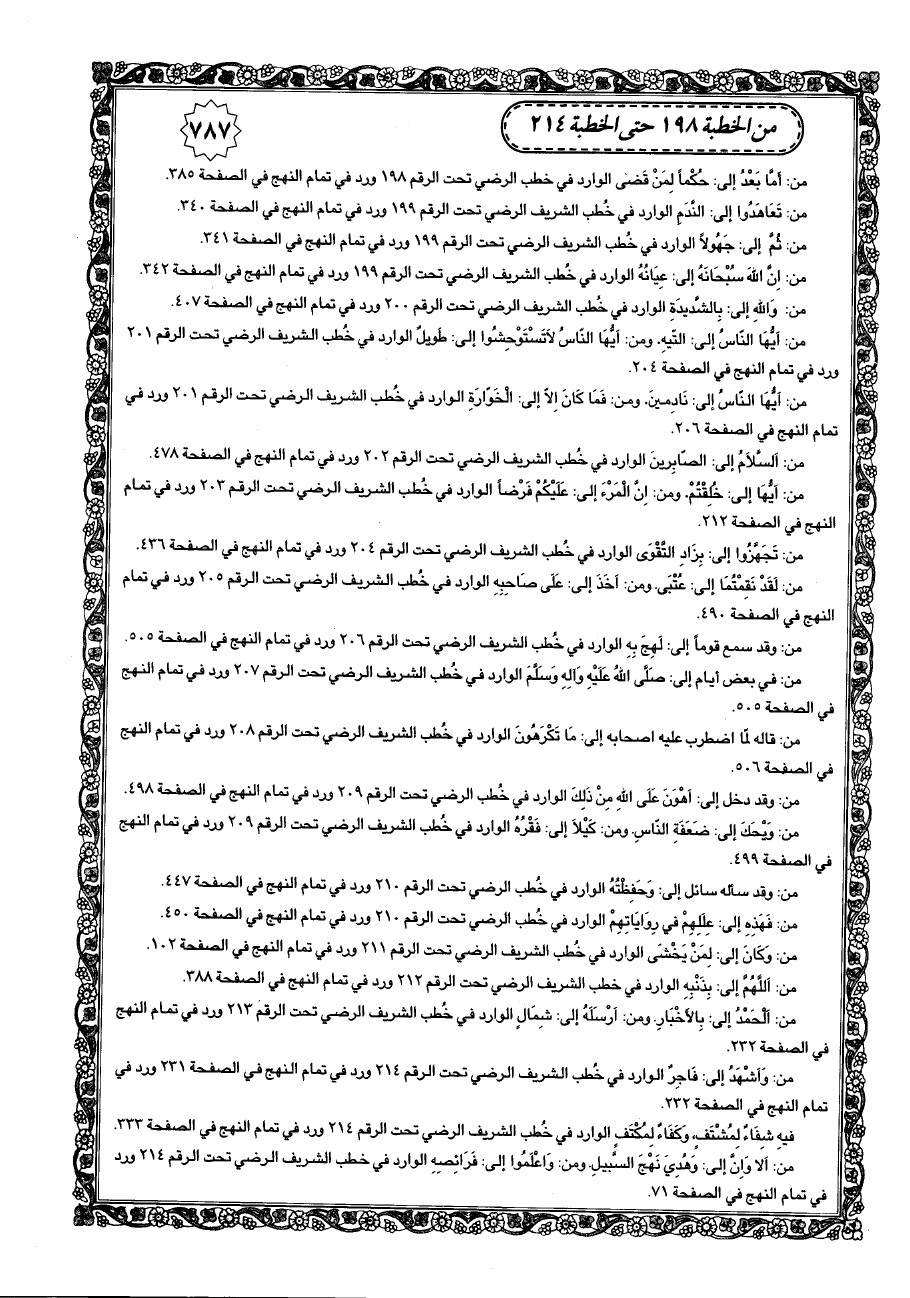 من الخطبة ١٩٨ حتى الخطبة ٢١٤
٧٨٧
من: أَمَّا بَعْدُ إلى: حُكْماً لِمَنْ قَضى الوارد في خطب الرضي تحت الرقم ١٩٨ ورد في تمام النهج في الصفحة ٣٨٥.
من: تَعَاهَدُوا إلى: النَّدَمِ الوارد في خُطب الشريف الرضي تحت الرقم ١٩٩ ورد في تمام النهج في الصفحة ٣٤٠.
من: ثُمَّ إلى: جَهُولاً الوارد في خُطب الشريف الرضي تحت الرقم ١٩٩ ورد في تمام النهج في الصفحة ٣٤١.
من: إِنَّ اللهَ سُبْحَانَهُ إلى: عِيَانُهُ الوارد في خُطب الشريف الرضي تحت الرقم ١٩٩ ورد في تمام النهج في الصفحة ٣٤٢.
من: وَاللهِ إلى: بِالشَّدِيدَةِ الوارد في خُطب الشريف الرضي تحت الرقم ٢٠٠ ورد في تمام النهج في الصفحة ٤٠٧.
من: أَيُّهَا النَّاسُ إلى: التّيهِ. ومن: أَيُّهَا النَّاسُ لاَتَسْتَوْحِشُوا إلى: طَويلٌ الوارد في خُطب الشريف الرضي تحت الرقم ٢٠١
ورد في تمام النهج في الصفحة ٢٠٤.
من: أَيُّهَا النَّاسُ إلى: نَادِمينَ. ومن: فَمَا كَانَ إِلاَّ إلى: الْخَوَّارَةِ الوارد في خُطب الشريف الرضي تحت الرقم ٢٠١ ورد في
تمام النهج في الصفحة ٢٠٦.
من: اَلسَّلاَمُ إلى: الصَّابِرينَ الوارد في خُطب الشريف الرضي تحت الرقم ٢٠٢ ورد في تمام النهج في الصفحة ٤٧٨.
من: أَيُّهَا إلى: خُلِقْتُمْ. ومن: إِنَّ الْمَرْءَ إلى: عَلَيْكُمْ فَرْضاً الوارد في خُطب الشريف الرضي تحت الرقم ٢٠٣ ورد في تمام
النهج في الصفحة ٢١٢.
من: تَجَهَّزُوا إلى: بِزَادِ التَّقْوَى الوارد في خُطب الشريف الرضي تحت الرقم ٢٠٤ ورد في تمام النهج في الصفحة ٤٣٦.
من: لَقَدْ نَقِمْتُمَا إلى: عُتْبَى. ومن: أَخَذَ إلى: عَلَى صَاحِبِهِ الوارد في خُطب الشريف الرضي تحت الرقم ٢٠٥ ورد في تمام
النهج في الصفحة ٤٩٠.
من: وقد سمع قوماً إلى: لَهِجَ بِهِ الوارد في خُطب الشريف الرضي تحت الرقم ٢٠٦ ورد في تمام النهج في الصفحة ٥٠٥.
من: في بعض أيام إلى: صَلَّى اللهُ عَلَيْهِ وَآلِهِ وَسَلَّمَ الوارد في خُطب الشريف الرضي تحت الرقم ٢٠٧ ورد في تمام النهج
في الصفحة ٥٠٥.
من: قاله لمّا اضطرب عليه اصحابه إلى: مَا تَكْرَهُونَ الوارد في خُطب الشريف الرضي تحت الرقم ٢٠٨ ورد في تمام النهج
في الصفحة ٥٠٦.
من: وقد دخل إلى: أَهْوَنَ عَلَى اللهِ مِنْ ذَلِكَ الوارد في خُطب الرضي تحت الرقم ٢٠٩ ورد في تمام النهج في الصفحة ٤٩٨.
من: وَيْحَكَ إلى: ضَعَفَةِ النَّاسِ. ومن: كَيْلاَ إلى: فَقْرُهُ الوارد في خُطب الشريف الرضي تحت الرقم ٢٠٩ ورد في تمام النهج
في الصفحة ٤٩٩.
من: وقد سأله سائل إلى: وَحَفِظْتُهُ الوارد في خُطب الرضي تحت الرقم ٢١٠ ورد في تمام النهج في الصفحة ٤٤٧.
من: فَهَذِهِ إلى: عِلَلِهِمْ في رِوَايَاتِهِمْ الوارد في خُطب الرضي تحت الرقم ٢١٠ ورد في تمام النهج في الصفحة ٤٥٠.
من: وَكَانَ إلى: لِمَنْ يَخْشَى الوارد في خُطب الشريف الرضي تحت الرقم ٢١١ ورد في تمام النهج في الصفحة ١٠٢.
من: اَللَّهُمَّ إلى: بِذَنْبِهِ الوارد في خطب الشريف الرضي تحت الرقم ٢١٢ ورد في تمام النهج في الصفحة ٣٨٨.
من: اَلْحَمْدُ إلى: بِالأَخْبَارِ. ومن: أَرْسَلَهُ إلى: شِمَالٍ الوارد في خُطب الشريف الرضي تحت الرقم ٢١٣ ورد في تمام النهج
في الصفحة ٢٣٢.
من: وَأَشْهَدُ إلى: فَاجِرٌ الوارد في خُطب الشريف الرضي تحت الرقم ٢١٤ ورد في تمام النهج في الصفحة ٢٣١ ورد في
تمام النهج في الصفحة ٢٣٢.
فيهِ شِفَاءٌ لِمُشْتَفٍ، وَكَفَاءٌ لِمُكْتَفٍ الوارد في خُطب الشريف الرضي تحت الرقم ٢١٤ ورد في تمام النهج في الصفحة ٣٣٣.
من: أَلا وَإِنَّ إلى: وَهُدِيَ نَهْجَ السَّبيلِ. ومن: وَاعْلَمُوا إلى: فَرَائِصِهِ الوارد في خطب الشريف الرضي تحت الرقم ٢١٤ ورد
في تمام النهج في الصفحة ٧١.